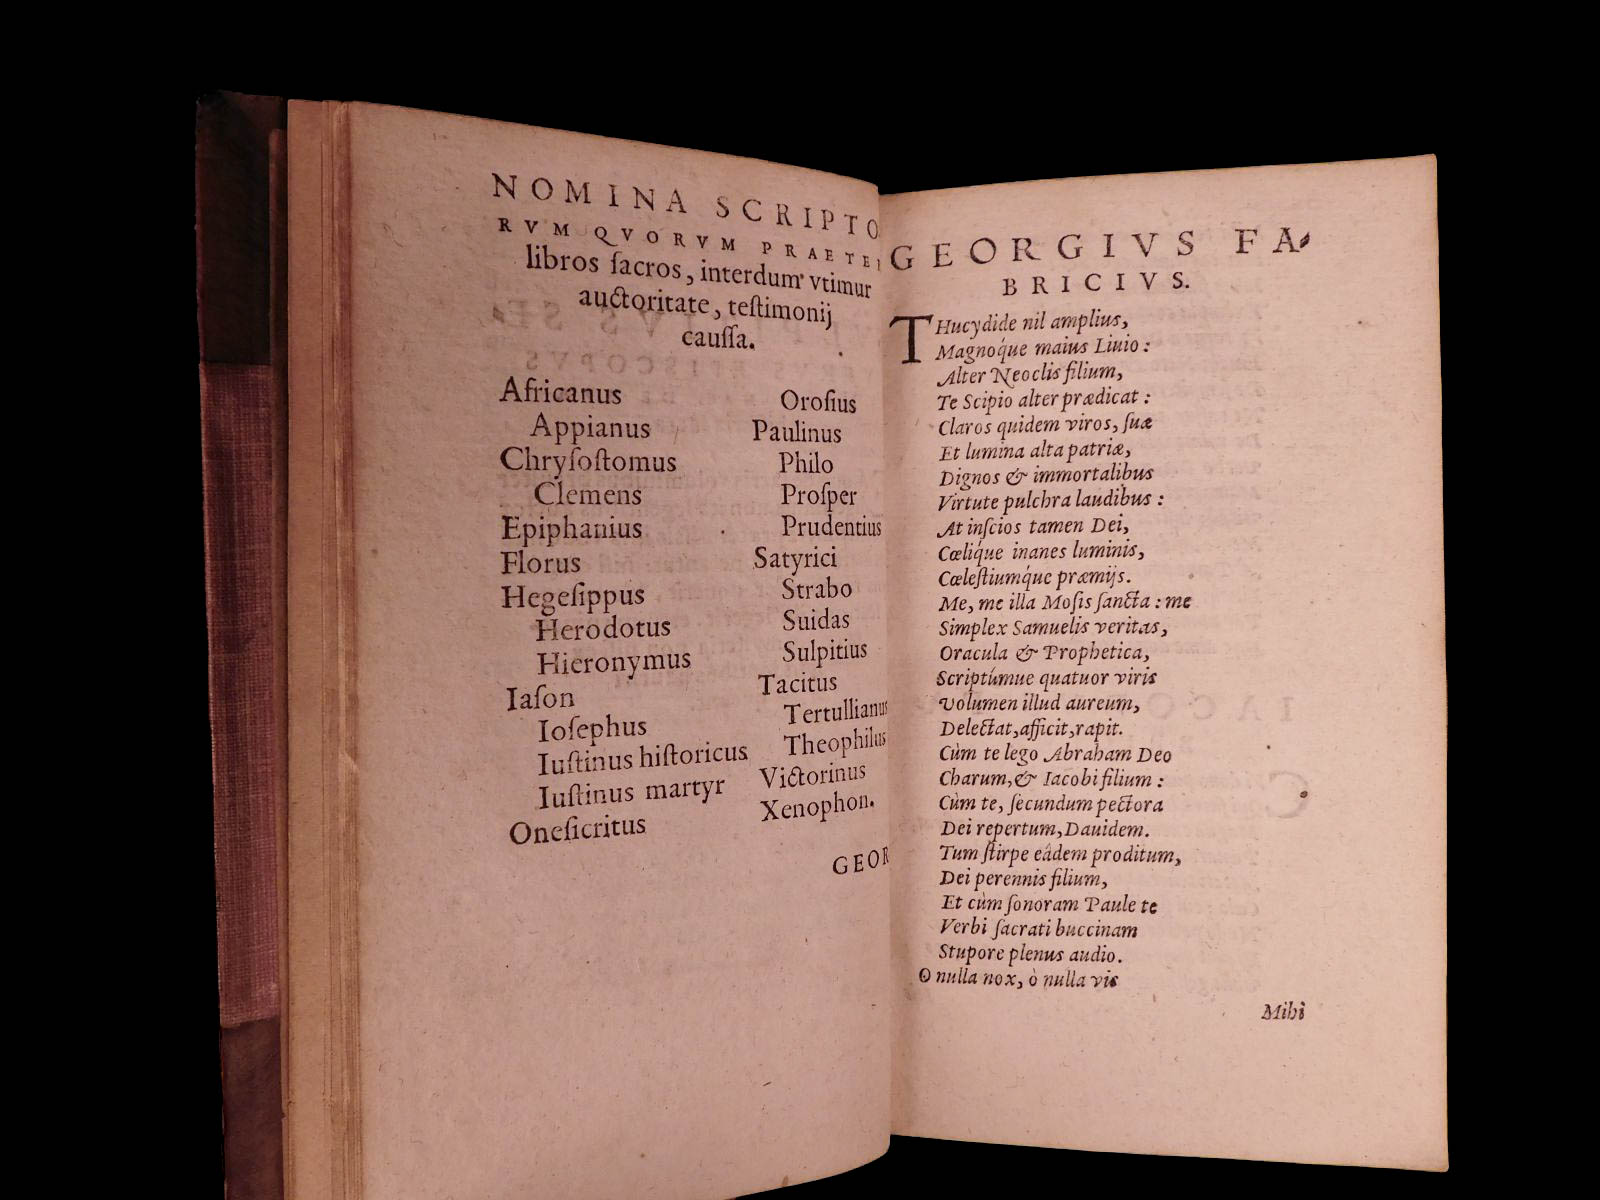 NOMINA SCRIPTO
RVM QVORVM PRAETE
libros ſacros, interdum vtimur
auctoritate, teſtimonij
cauſſa.
Africanus
Appianus
Chryſoſtomus
Clemens
Epiphanius
Florus
Hegeſippus
Herodotus
Hieronymus
Iaſon
Ioſephus
Iuſtinus hiſtoricus
Iuſtinus martyr
Oneſicritus
Oroſius
Paulinus
Philo
Proſper
Prudentius
Satyrici
Strabo
Suidas
Sulpitius
Tacitus
Tertullianus
Theophilus
Victorinus
Xenophon.
GEOR
GEORGIVS FA-
BRICIVS.
THucydide nil amplius,
Magnoq́ue maius Liuio:
Alter Neoclis filium,
Te Scipio alter prædicat:
Claros quidem viros, ſuæ
Et lumina alta patriæ,
Dignos & immortalibus
Virtute pulchra laudibus:
At inſcios tamen Dei,
Cœlique inanes luminis,
Cœleſtiumq́ue præmijs.
Me, me illa Moſis ſancta: me
Simplex Samuelis veritas,
Oracula & Prophetica,
Scriptúmue quatuor viris
Volumen illud aureum,
Delectat, afficit, rapit.
Cùm te lego Abraham Deo
Charum, & Iacobi filium:
Cùm te, ſecundum pectora
Dei repertum, Dauidem.
Tum ſtirpe eâdem proditum,
Dei perennis filium,
Et cùm ſonoram Paule te
Verbi ſacrati buccinam
Stupore plenus audio.
O nulla nox, ò nulla vis
Mihi